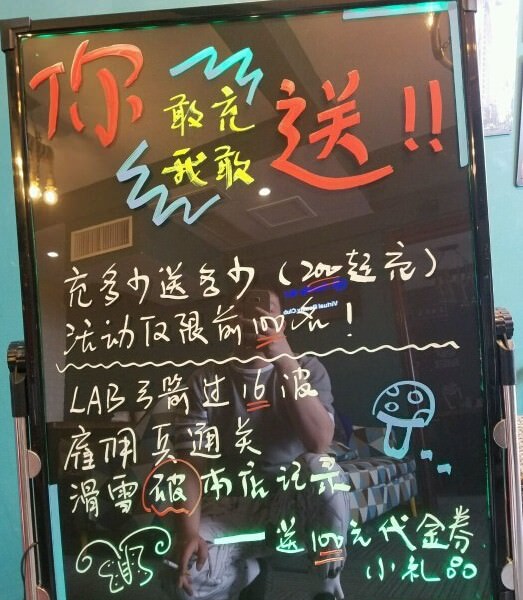 你敢充
我敢送!!
充多少送多少（200起充）
活动仅限前100名！
Virtual Reality Club
LAB弓箭过16波
雇佣兵通关
滑雪破本店记录
送100元代金券
小礼品